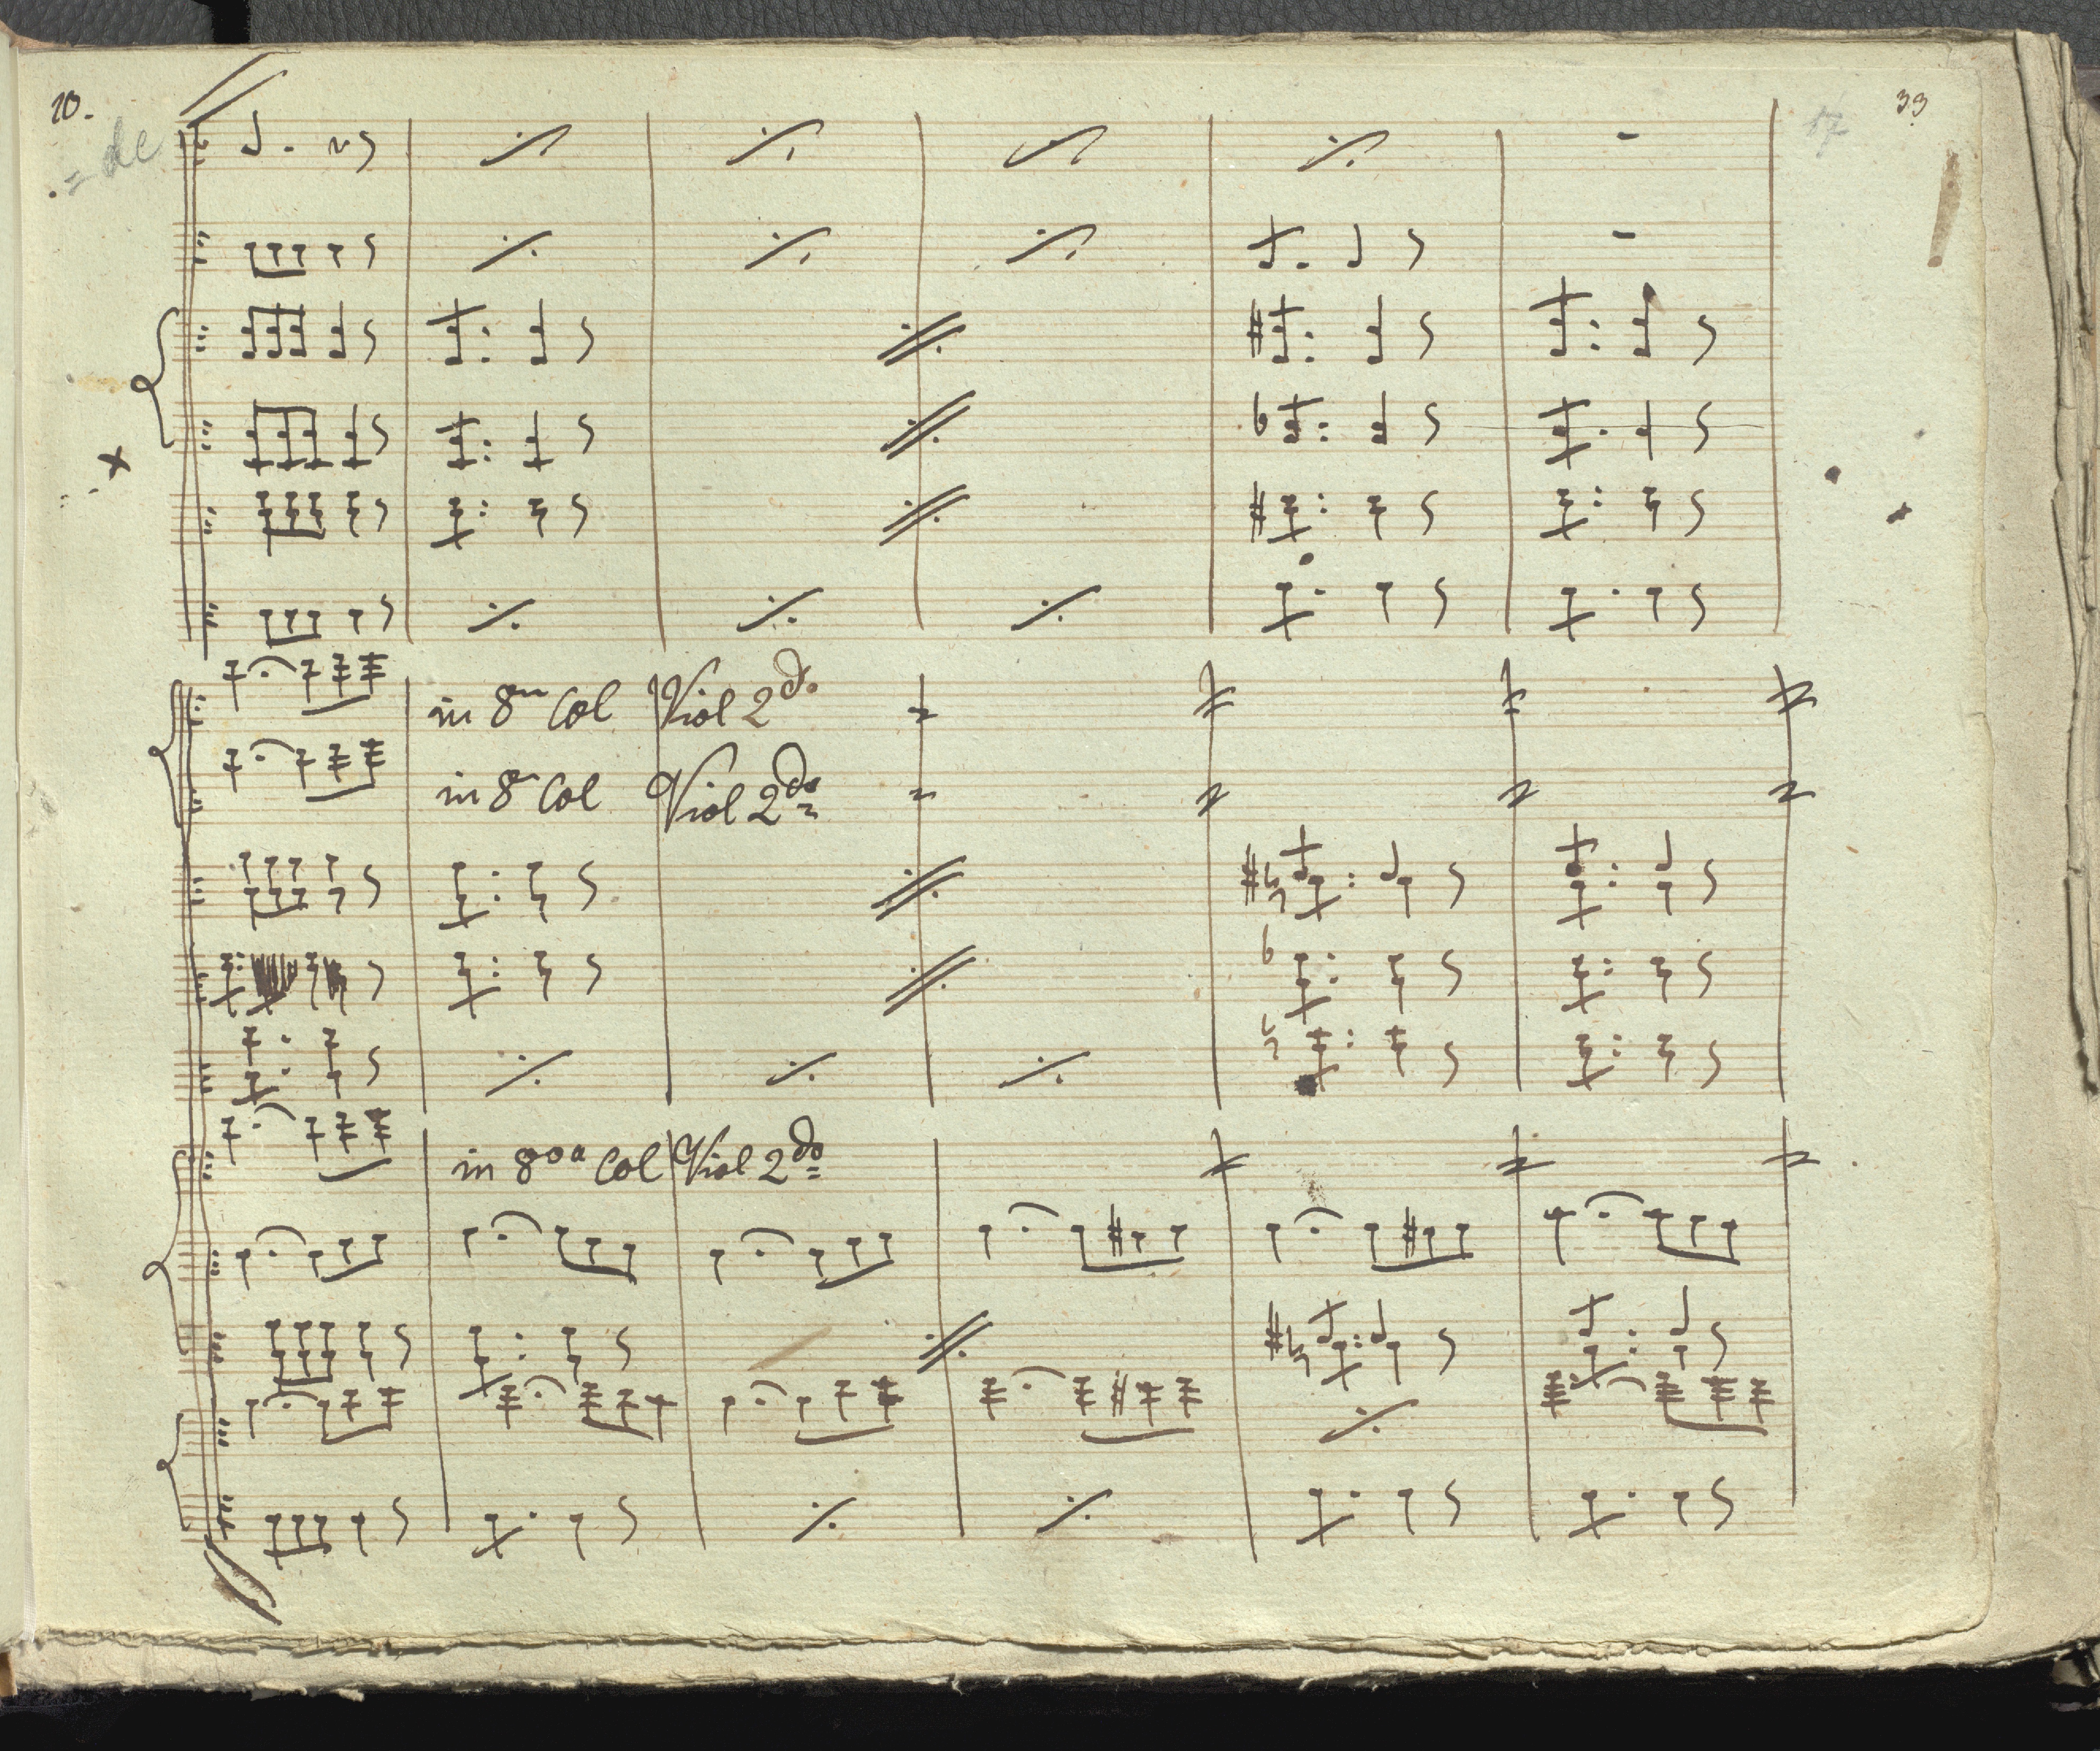 10.
33
17
= de
in 8va Col Viol 2do.
in 8a Col Viol 2do
in 8va Col Viol 2do